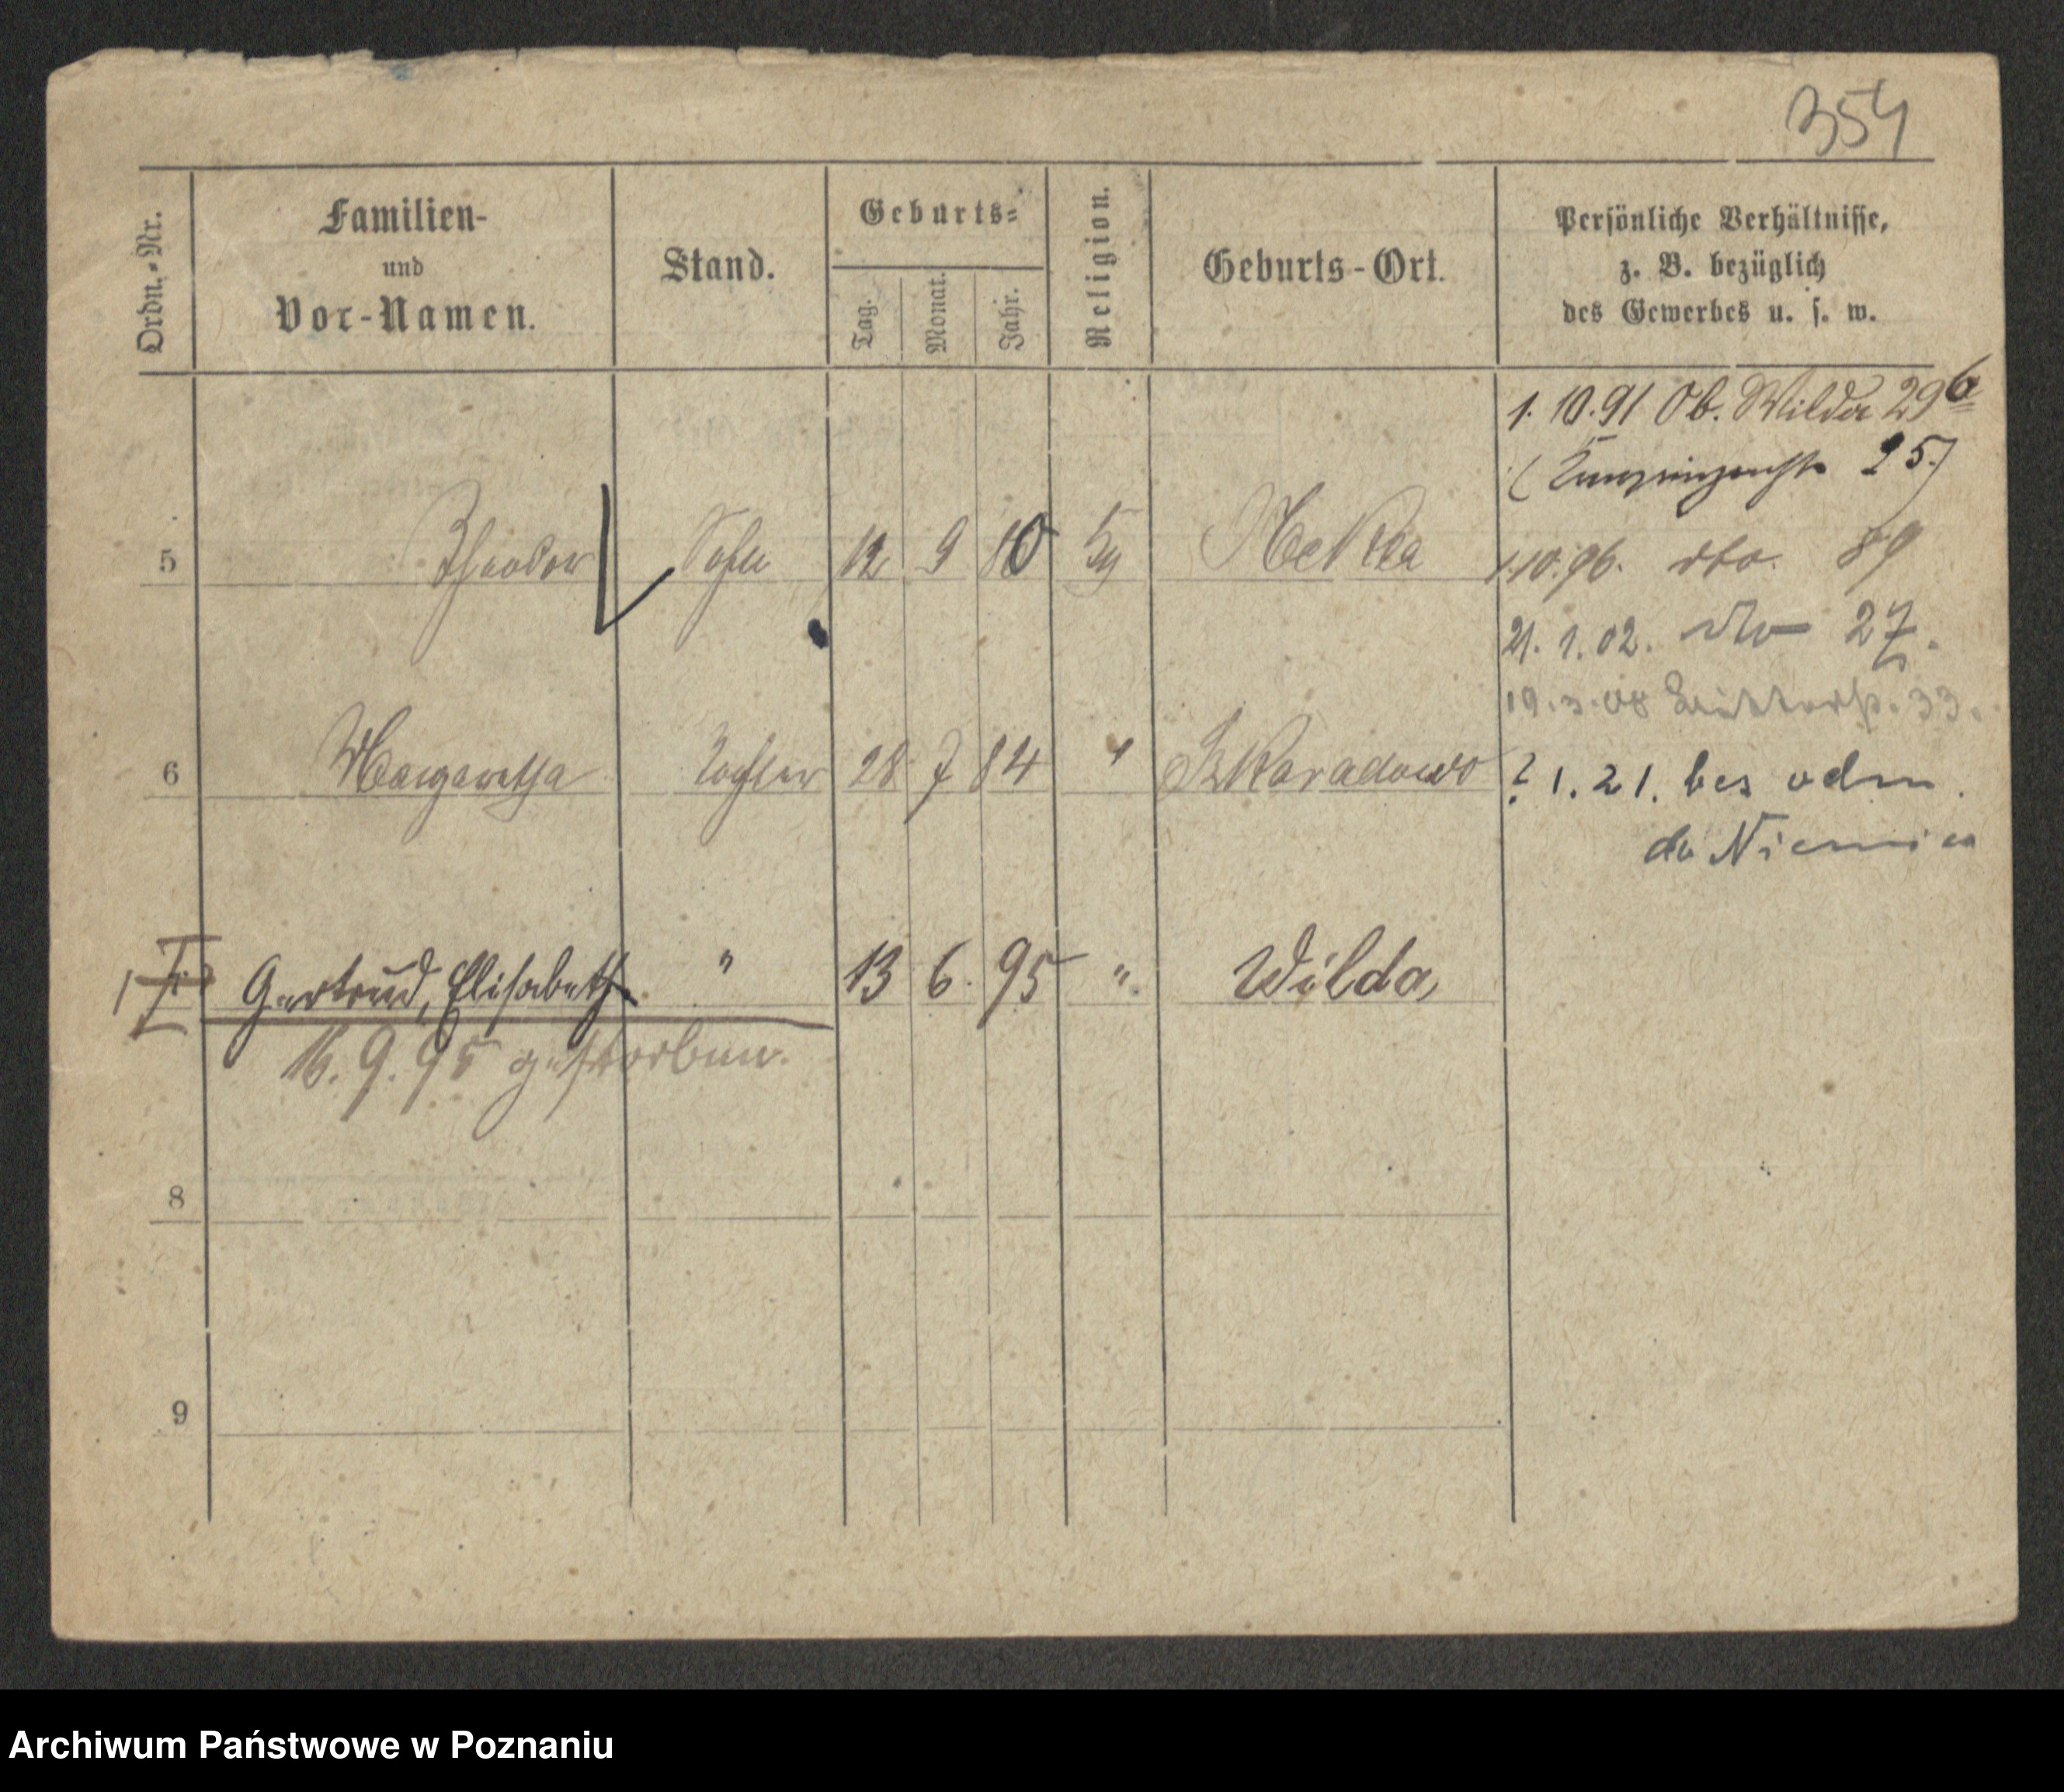 354
Ordn.-Nr.
Familien-
und
Vor-Namen.
Stand.
Geburts-
Tag.
Monat.
Jahr.
Religion.
Geburts-Ort.
Persönliche Verhältnisse,
z. B. bezüglich
des Gewerbes u. s. w.
1. 10. 91 Ob. Wilda 29
25.)
5 Theodor Sohn 12 9 80 Mekka
1.10.96. dto. 89
21. 1. 02. dto 27.
19.3.08 33.
6 Margaretha Tochter 28 7 84 " Skoradowo
? 1. 21. bez odm.
do Niemiec
Gertrud, Elisabeth " 13 6. 95 " Wilda
16. 9. 95 gestorben.
8
9
Archiwum Państwowe w Poznaniu